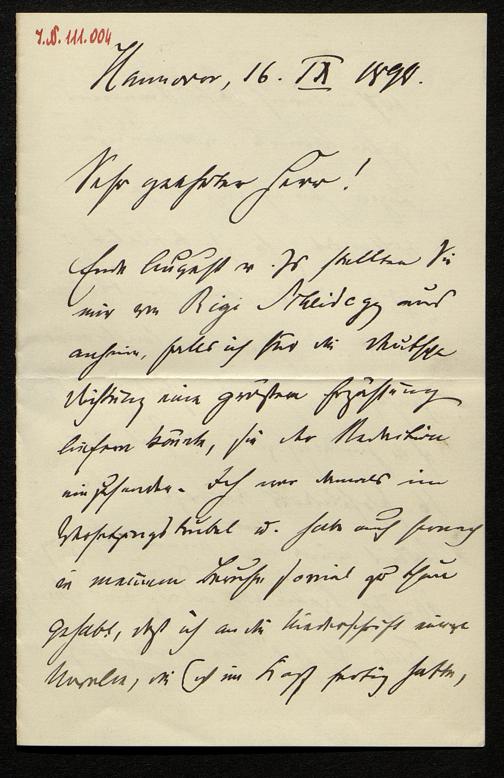 J.N. 111.004
Hannover, 16. IX 1890.
Sehr geehrter Herr!
Ende August v. Js stellten Sie
mir von Rigi Scheidegg aus
anheim, falls ich für die Deutsche
Dichtung eine größere Erzählung
liefern könnte, sie der Redaktion
einzusenden. Ich war damals im
Versetzungstrubel u. habe auch
in meinem Berufe soviel zu thun
gehabt, daß ich an die Niederschrift einiger
Novellen, die ich im Kopf fertig hatte,